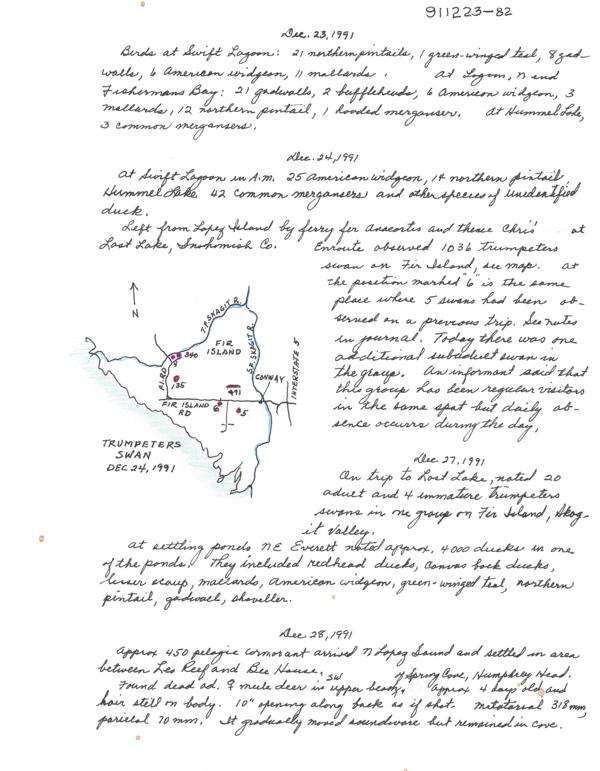 911223-82
Dec. 23, 1991
Birds at Swift Lagoon: 21 northern pintails, 1 green-winged teal, 8 gad-
walls, 6 American widgeon, 11 mallards. At Lagoon, N end
Fishermans Bay: 21 gadwalls, 2 buffleheads, 6 American widgeon, 3
mallards, 12 northern pintail, 1 hooded merganser. At Hummel Lake,
3 common mergansers.
Dec. 24, 1991
At Swift Lagoon in A.M. 25 American widgeon, 14 northern pintail,
Hummel Lake. 42 common mergansers and other species of unidentified
duck.
Left from Lopez Island by ferry for Anacortes and thence Chris' at
Lost Lake, Snohomish Co. Enroute observed 1036 trumpeters
swan on Fir Island, see map. At
the position marked "6" is the same
place where 5 swans had been ob-
served on a previous trip. See notes
in journal. Today there was one
additional subadult swan in
the group. An informant said that
this group has been regular visitors
in the same spot but daily ab-
sence occurrs during the day.
N
T.P. SKAGIT R.
FIR
ISLAND
S.P. SKAGIT R.
INTERSTATE 5
346
9
P.I. RD
135
491
CONWAY
FIR ISLAND
RD
6
5
TRUMPETERS
SWAN
DEC 24, 1991
Dec 27, 1991
On trip to Lost Lake, noted 20
adult and 4 immature trumpeters
swans in one group on Fir Island, Skag-
it Valley.
At settling ponds NE Everett noted approx. 4000 ducks in one
of the ponds. They included redhead ducks, canvas back ducks,
lesser scaup, mallards, American widgeon, green-winged teal, northern
pintail, gadwall, shoveller.
Dec 28, 1991
Approx 450 pelagic cormorant arrived N Lopez Sound and settled in area
between Leo Reef and Bee House, SW of Spring Cove, Humphrey Head.
Found dead ad. ♀ mule deer in upper beach. Approx 4 days old and
hair still on body. 10" opening along back as if shot. Metatarsal 318 mm,
parietal 70 mm. It gradually moved soundward but remained in cove.